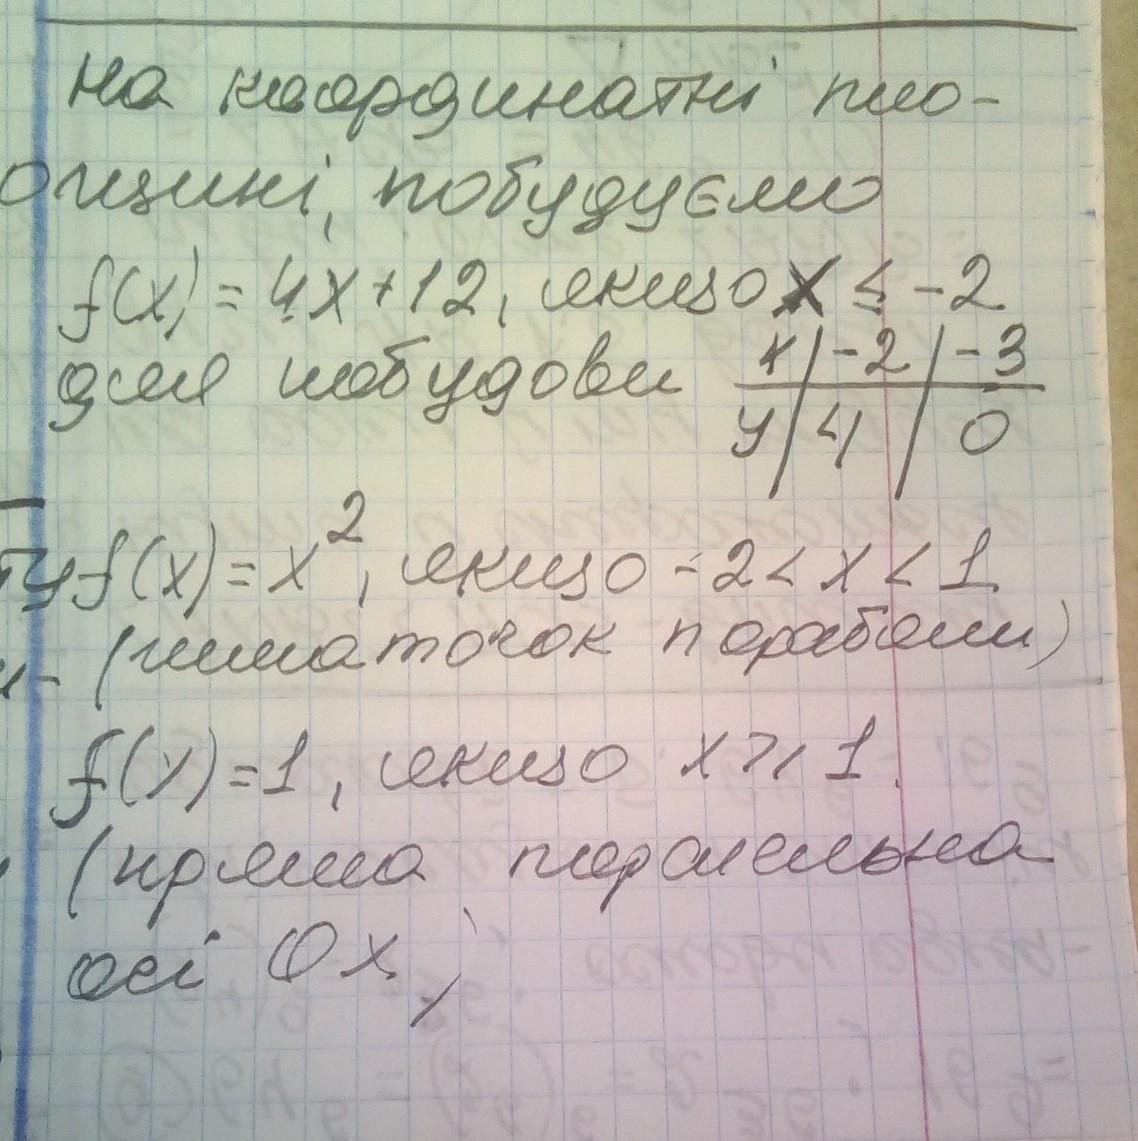 на координатні пло-
ощині, побудуємо
f(x) = 4x+12, якщо x ≤ -2
для побудови x | -2 | -3
y | 4 | 0
f(x) = x², якщо -2 < x < 1
(шматочок параболи)
f(x) = 1, якщо x ≥ 1.
(пряма паралельна
осі Ox)